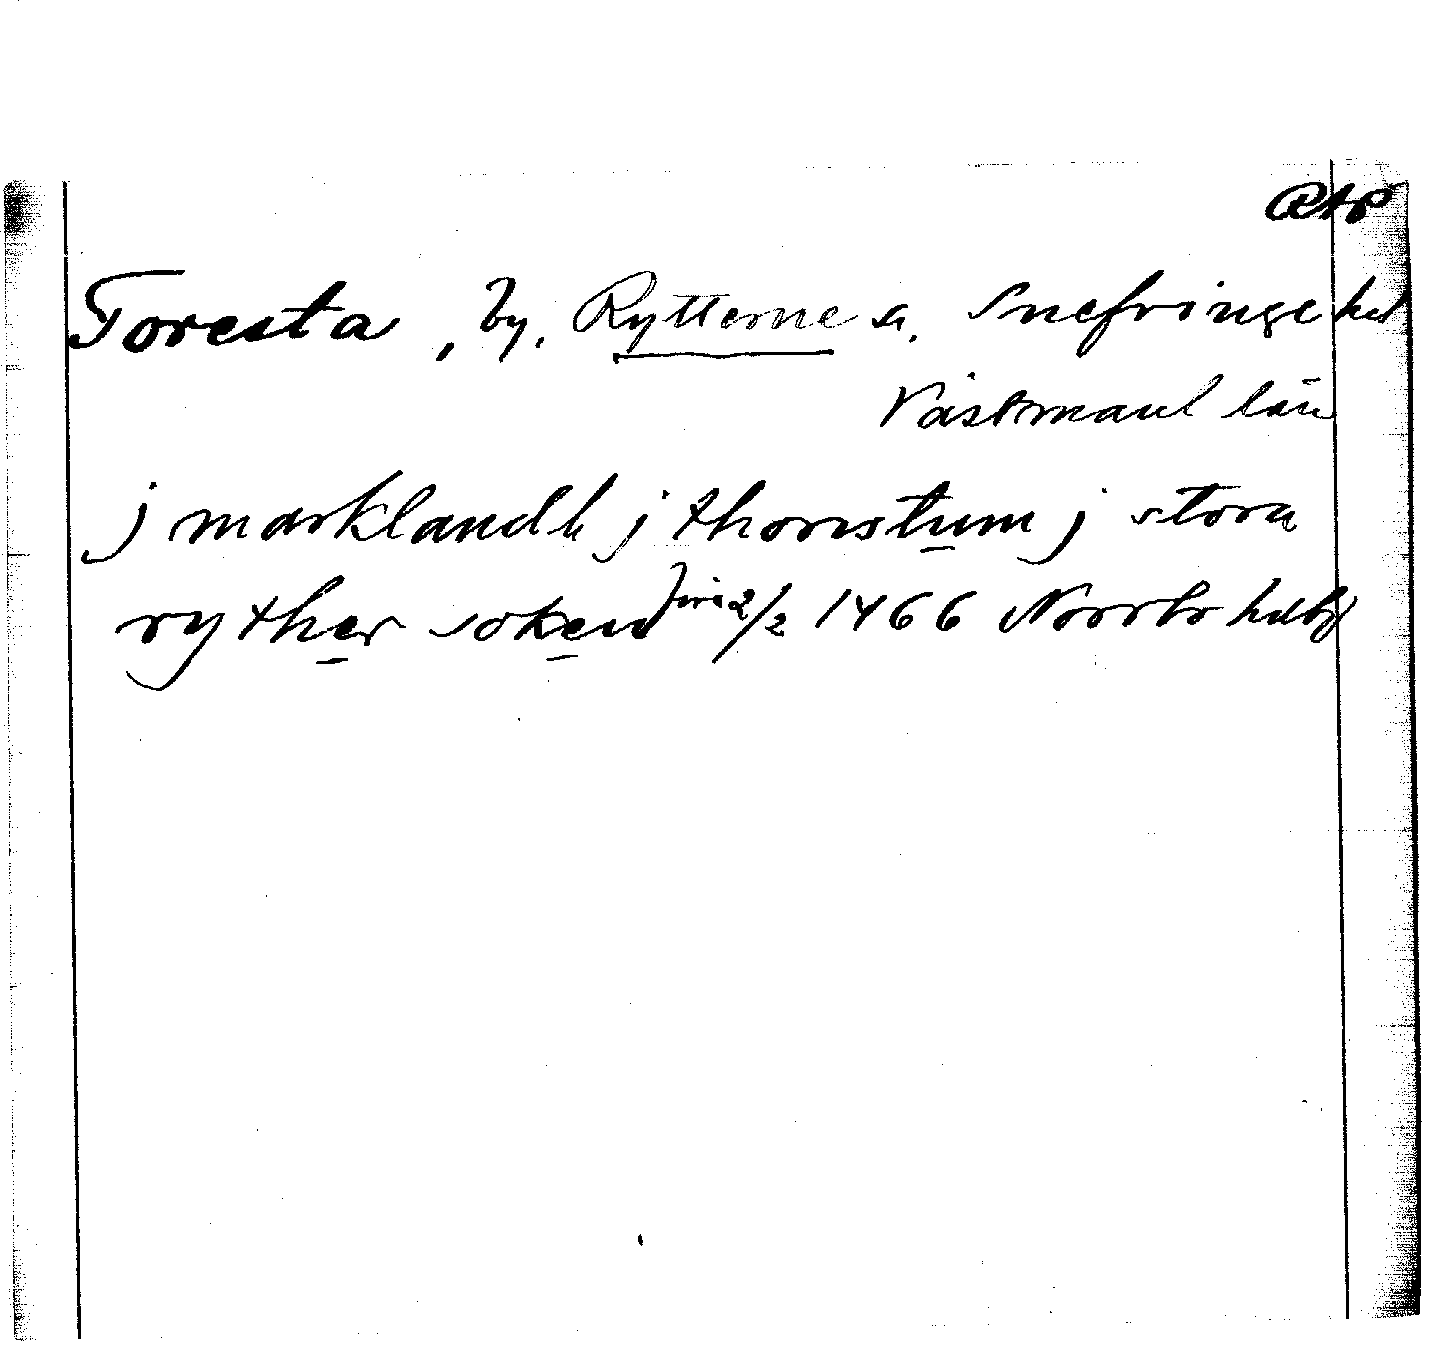 RAP
Toresta, by, Rytterne sn, Snefringe hd
Västmanl län
j marklandh j thoristum j stora
ryther soken 2/2 1466 Norrbo hdbf